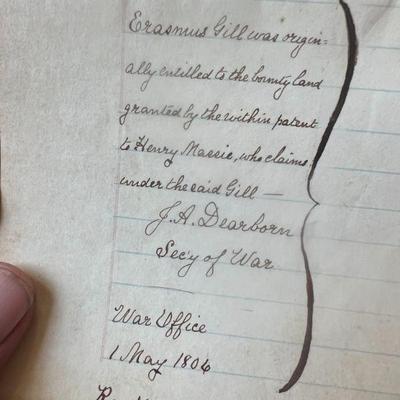 Erasmus Gill was origin=
ally entitled to the bounty land
granted by the within patent
to Henry Massie, who claims
under the said Gill —
J. A. Dearborn
Sec'y of War
War Office
1 May 1806